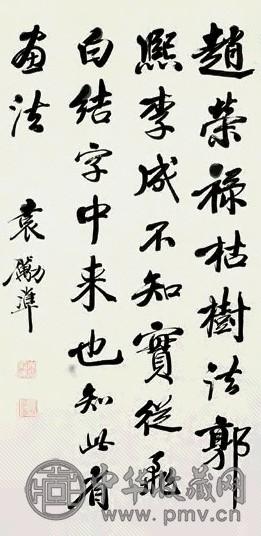 趙榮祿枯樹法郭
熙李成不知實從飛
白結字中来也知此者
畫法
袁勵準
中华收藏网
www.pmv.cn